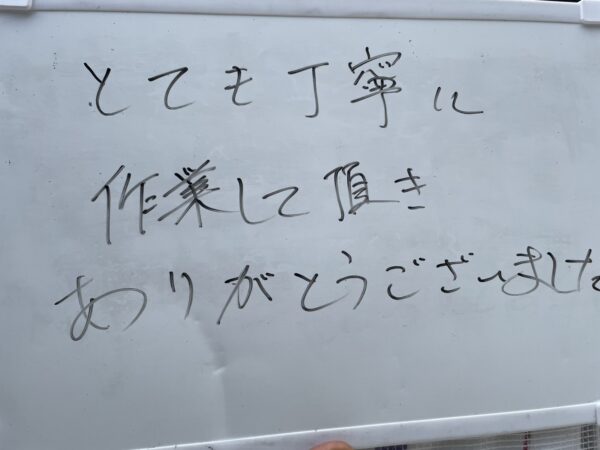 とても丁寧に
作業して頂き
ありがとうございました